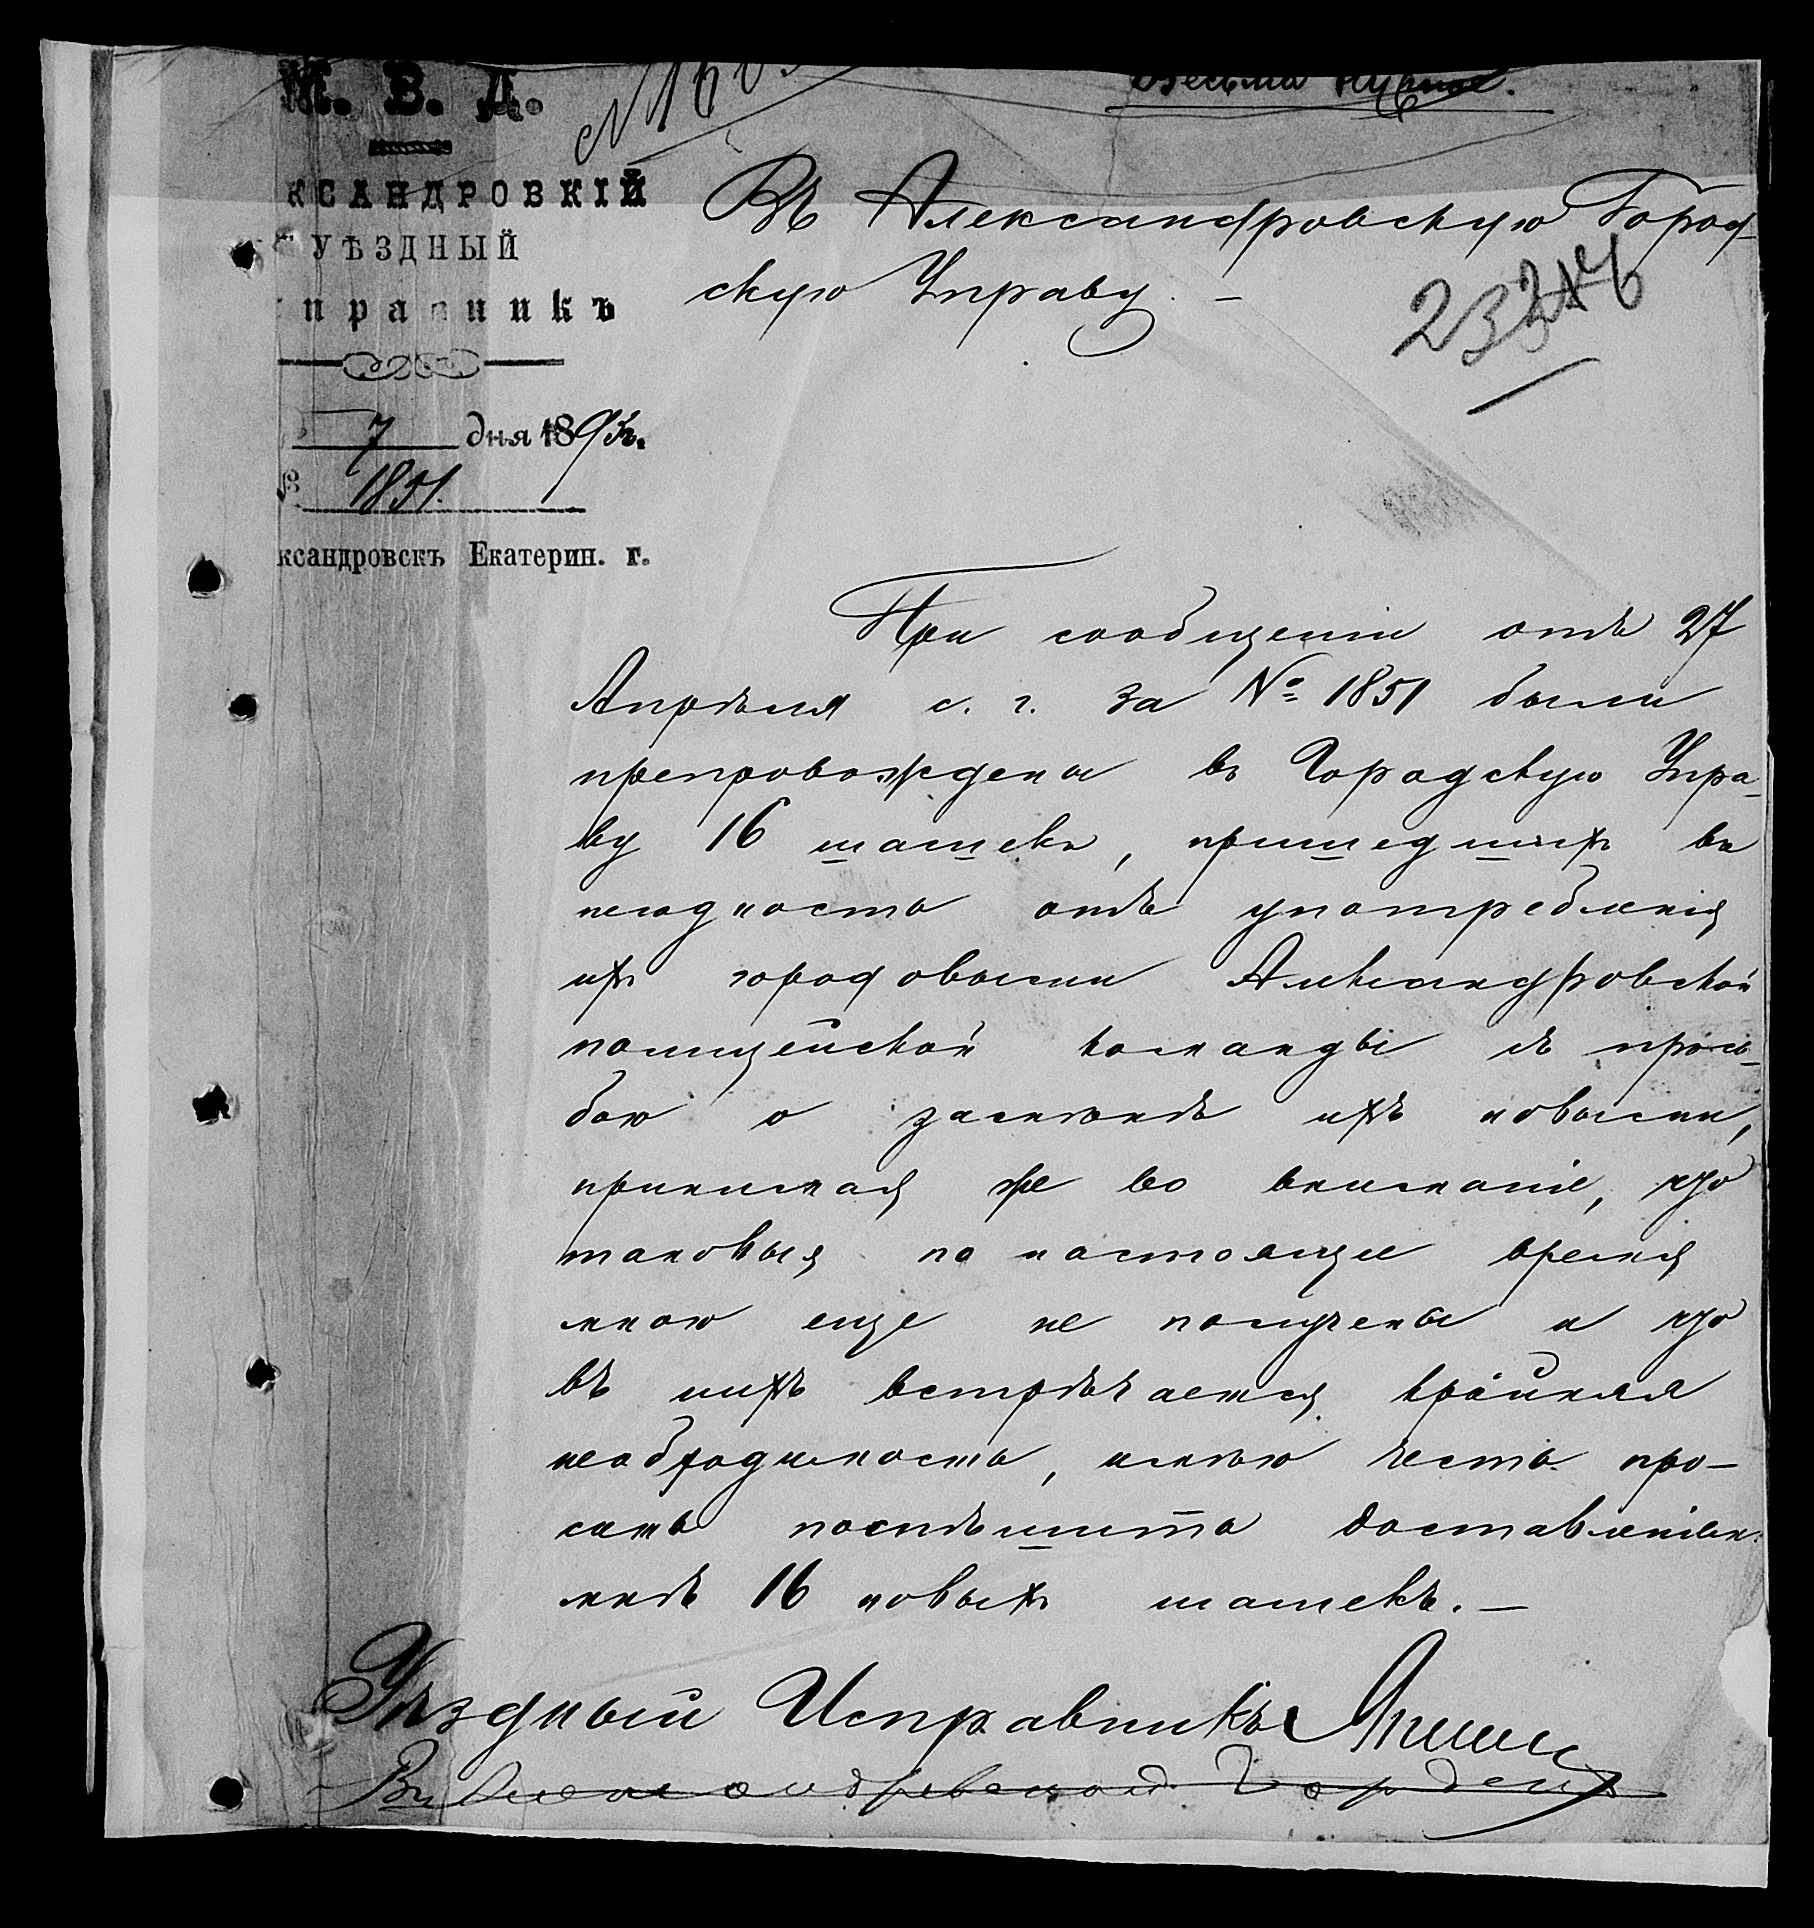 М. В. Д.
Весьма нужное.
КСАНДРОВКІЙ
УѢЗДНЫЙ
правникъ
7 дня 1893 г.
1851.
ксандровскъ Екатерин. г.
Въ Александровскую Город-
скую Управу. –
При сообщеніи отъ 27
Апрѣля с. г. за № 1851 были
препровождены въ Городскую Упра-
ву 16 шашекъ, пришедшихъ въ
негодность отъ употребленія
ихъ городовыми Александровской
полицейской команды съ прось-
бою о замѣнѣ ихъ новыми,
принимая же во вниманіе, что
таковыя по настоящее время
мною еще не получены и что
въ нихъ встрѣчается крайняя
необходимость, имѣю честь про-
сить поспѣшить доставленіем
мнѣ 16 новыхъ шашекъ. –
Уѣздный Исправникъ